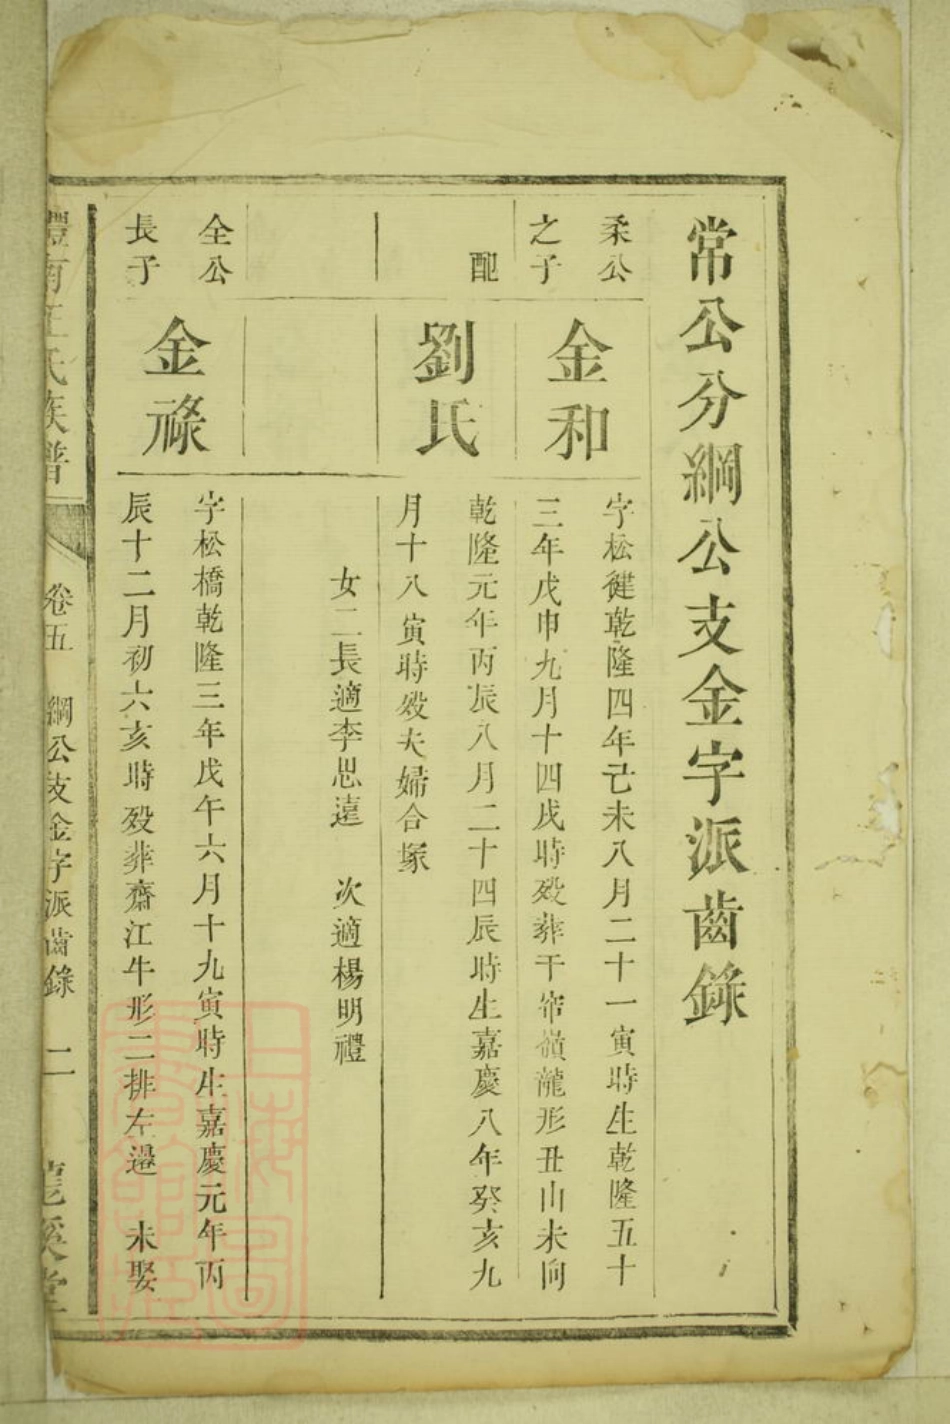 常公分綱公支金字派齒錄
柔公
之子
金和
字松健乾隆四年己未八月二十一寅時生乾隆五十
三年戊申九月十四戌時殁葬干帘嶺龍形丑山未向
配
劉氏
乾隆元年丙辰八月二十四辰時生嘉慶八年癸亥九
月十八寅時殁夫婦合塚
女二長適李思遠 次適楊明禮
全公
長子
金祿
字松橋乾隆三年戊午六月十九寅時生嘉慶元年丙
辰十二月初六亥時殁葬齋江牛形二排左邊 未娶
南王氏族譜
卷五 綱公支金字派齒錄 二
龍溪堂
上海圖書館藏